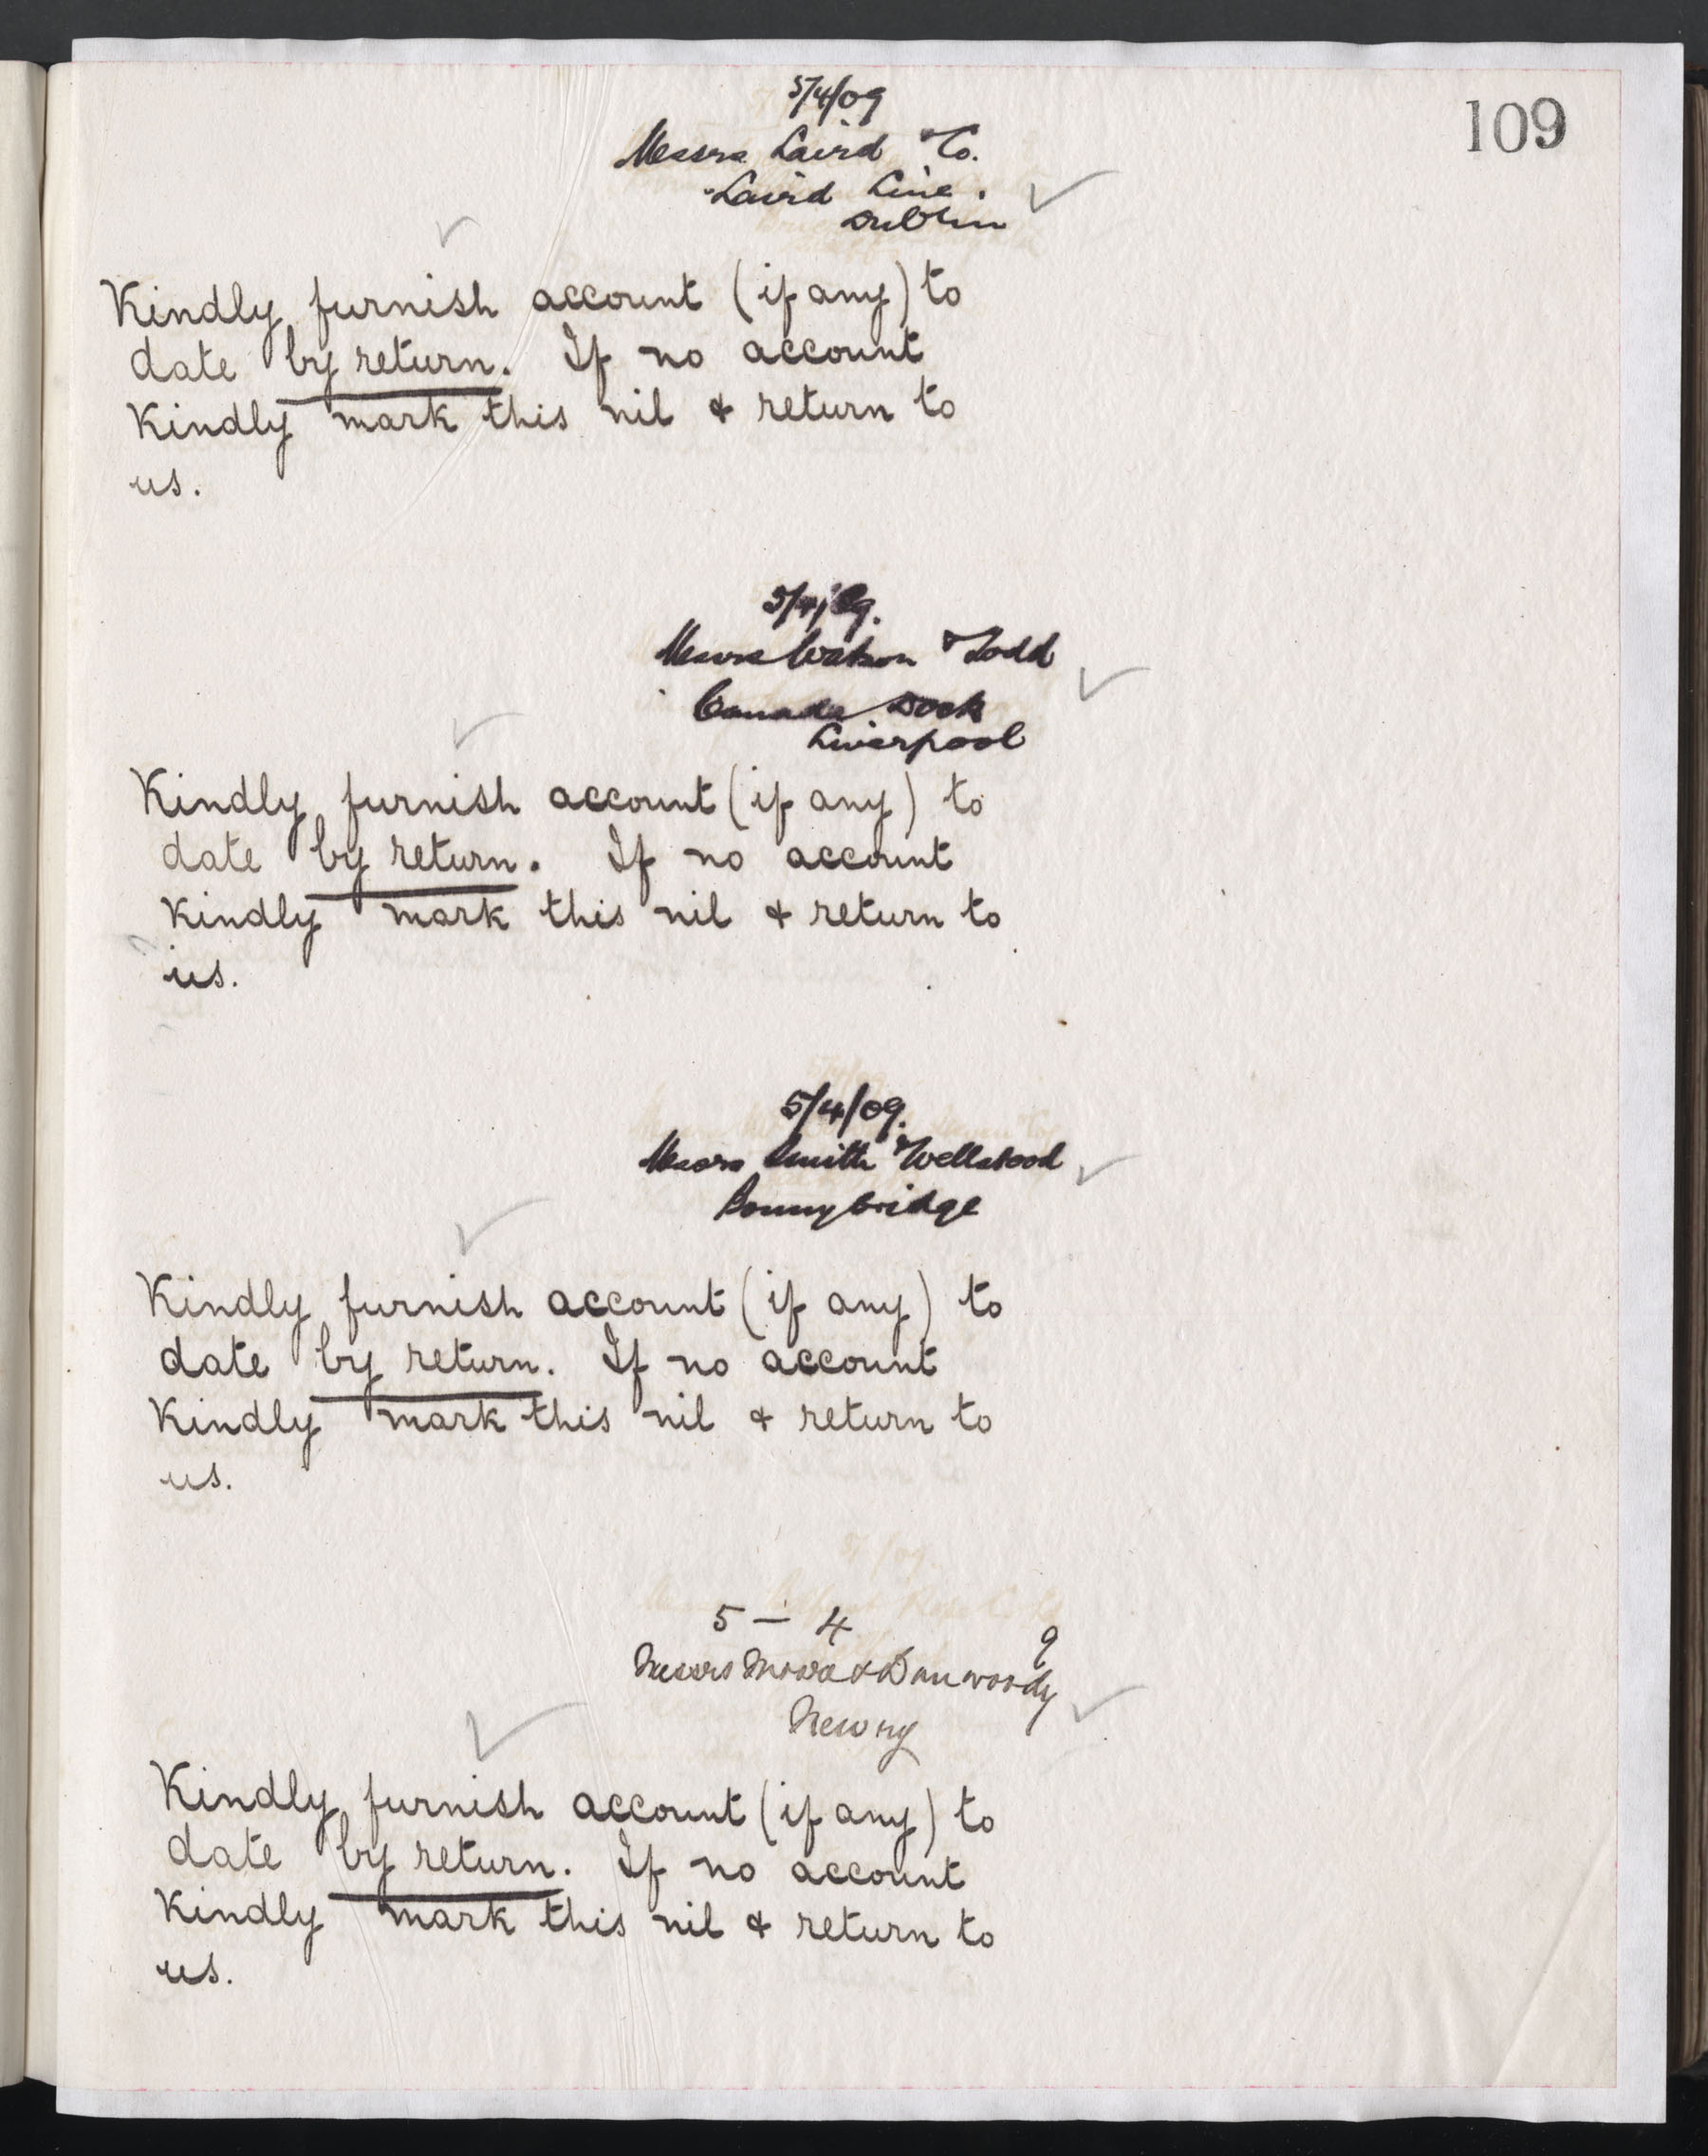 109
5/4/09
Messrs Laird & Co.
Laird Line.
Dublin
Kindly furnish account (if any) to
date by return. If no account
Kindly mark this nil & return to
us.
5/4/09.
Messrs Watson & Todd
Canada Dock
Liverpool
Kindly furnish account (if any) to
date by return. If no account
Kindly mark this nil & return to
us.
5/4/09.
Messrs Smith & Wellstood
Bonnybridge
Kindly furnish account (if any) to
date by return. If no account
Kindly mark this nil & return to
us.
5 — 4 9
Messrs & Dunwoody
Newry
Kindly furnish account (if any) to
date by return. If no account
Kindly mark this nil & return to
us.